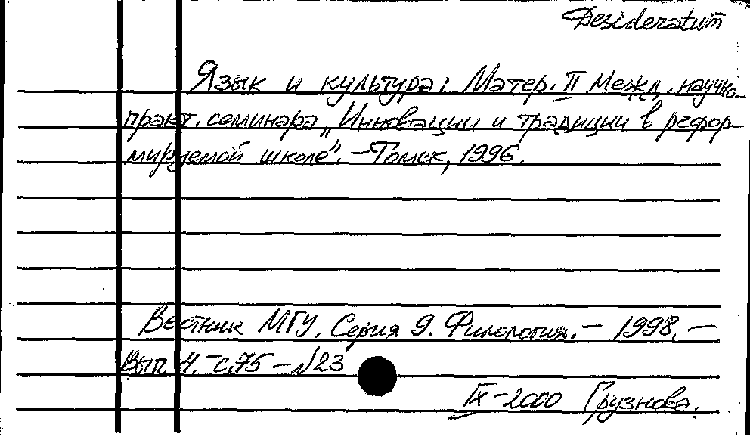 Desideratum
Язык и культура: Матер. II Межд. научно-
практ. семинара „Инновации и традиции в рефор-
мируемой школе". – Томск, 1996.
Вестник МГУ. Серия 9. Филология. – 1998. –
Вып. 4. – с.75 – №23
IX – 2000 Грузнова.